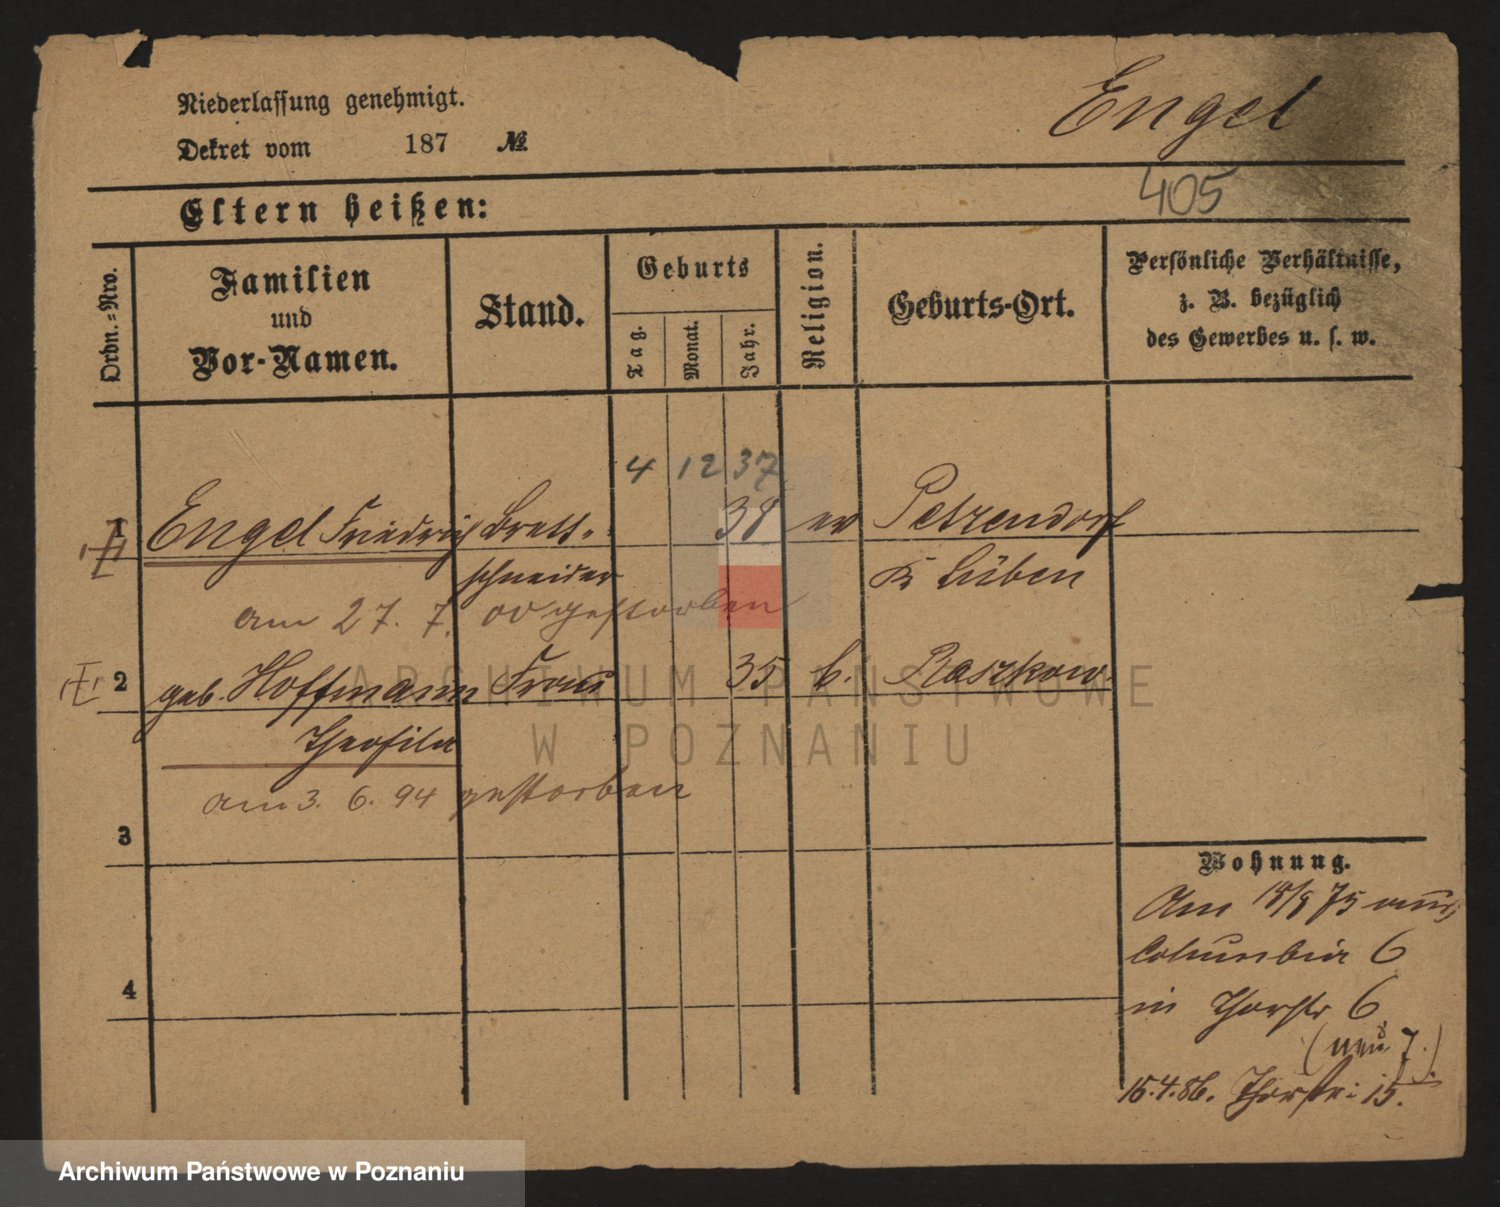 Niederlassung genehmigt.
Engel
Dekret vom 187 №
405
Eltern heißen:
Ordn.-Nro.
Familien und Vor-Namen.
Stand.
Geburts
Tag.
Monat.
Jahr.
Religion.
Geburts-Ort.
Persönliche Verhältnisse,
z. B. bezüglich
des Gewerbes u. s. w.
4 12 37
1 Engel Friedrich Brett- 38 ev Petzendorf
schneider K Lüben
am 27. 7. 00 gestorben
2 geb. Hoffmann Frau 35 k. Raszkow
Theofila
am 3. 6. 94 gestorben
3
4
Wohnung.
Am 18/9 75 aus
Columbia 6
in Thorstr 6
(neu 7.)
15.4.86. Thorstr: 15.
ARCHIWUM PAŃSTWOWE
W POZNANIU
Archiwum Państwowe w Poznaniu